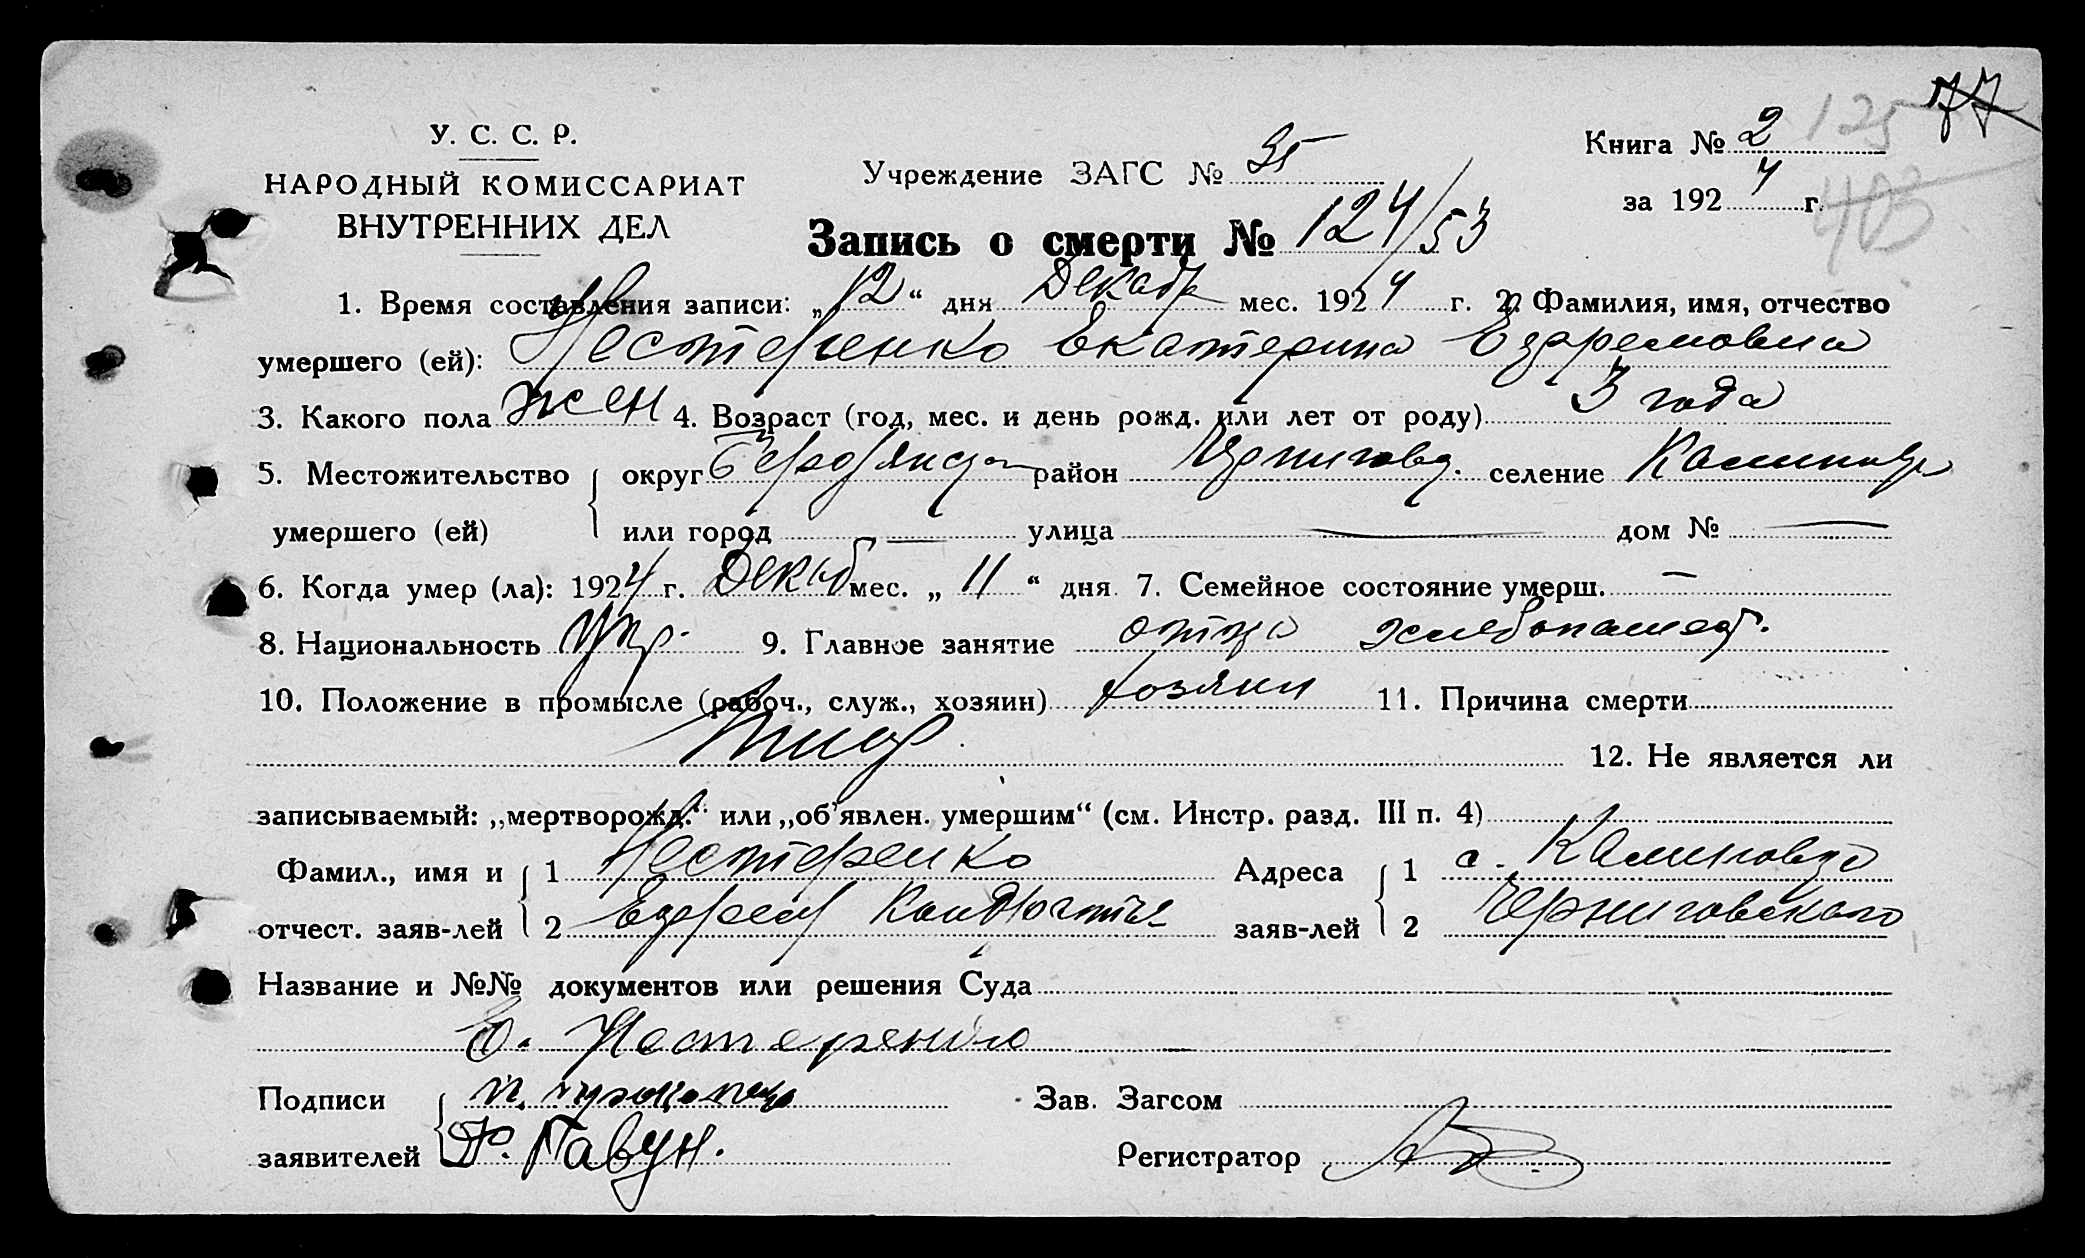 У. С. С. Р.
НАРОДНЫЙ КОМИССАРИАТ
ВНУТРЕННИХ ДЕЛ
Учреждение ЗАГС № 35
Книга № 2 125 77
за 1924 г. 403
Запись о смерти № 124/53
1. Время составления записи: „12“ дня Декабр мес. 1924 г. 2. Фамилия, имя, отчество
умершего (ей): Нестеренко Екатерина
3. Какого пола жен 4. Возраст (год, мес. и день рожд. или лет от роду) 3 года
5. Местожительство округ район Черниговс. селение
умершего (ей) или город — улица — дом № —
6. Когда умер (ла): 1924 г. Декаб мес. „11“ дня 7. Семейное состояние умерш. —
8. Национальность Укр. 9. Главное занятие отца хлебопашес.
10. Положение в промысле (рабоч., служ., хозяин) хозяин 11. Причина смерти
12. Не является ли
записываемый: „мертворожд.“ или „об'явлен. умершим“ (см. Инстр. разд. III п. 4)
Фамил., имя и 1 Нестеренко Адреса 1 с.
отчест. заяв-лей 2 заяв-лей 2 Черниговского
Название и №№ документов или решения Суда
Е. Нестеренко
Подписи Зав. Загсом
заявителей Гавун. Регистратор